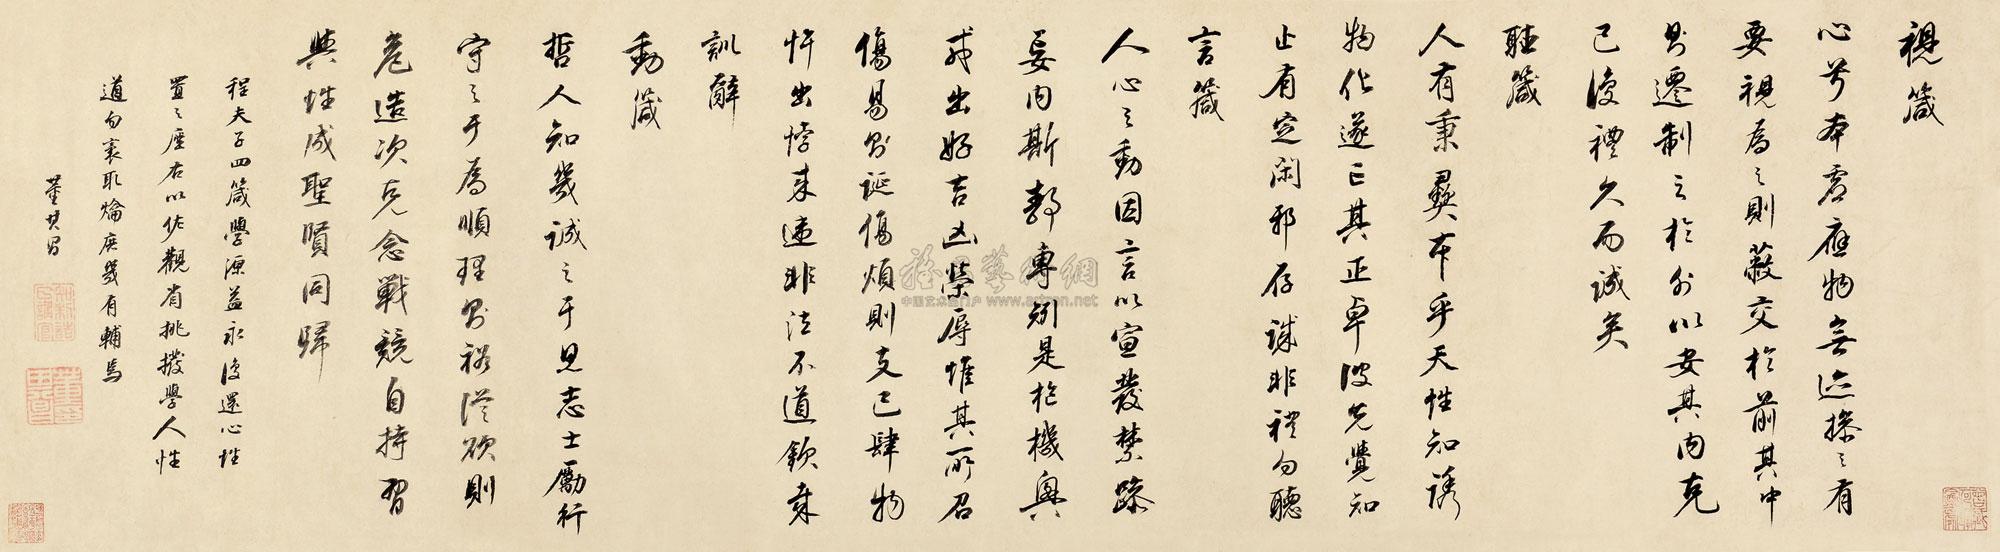 視箴
心兮本虛應物無迹操之有
要視為之則蔽交於前其中
則遷制之於外以安其內克
己復禮久而誠矣
聽箴
人有秉彝本乎天性知誘
物化遂亡其正卓彼先覺知
止有定閑邪存誠非禮勿聽
言箴
人心之動因言以宣發禁躁
妄內斯靜專矧是樞機興
戎出好吉凶榮辱惟其所召
傷易則誕傷煩則支己肆物
忤出悖來違非法不道欽哉
訓辭
動箴
哲人知幾誠之于思志士勵行
守之于為順理則裕從欲則
危造次克念戰兢自持習
與性成聖賢同歸
程夫子四箴學源益永復還心性
置之座右以佐觀省挑撥學人性
道勿裏取爚庶幾有輔焉
董其昌
中国艺术品门户 www.artron.net